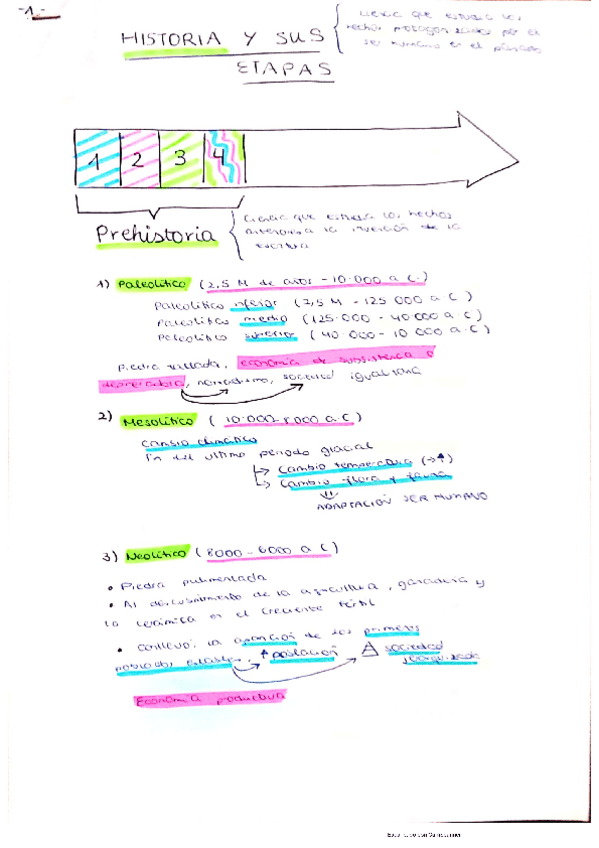 -1.-
HISTORIA Y SUS
ETAPAS
Ciencia que estudia los
hechos protagonizados por el
ser humano en el planeta
1 2 3 4
Prehistoria
Ciencia que estudia los hechos
anteriores a la invención de la
escritura
1) Paleolítico (2,5 M de años - 10.000 a C.)
Paleolítico inferior (2,5 M - 125 000 a C)
Paleolítico medio (125.000 - 40 000 a C)
Paleolítico superior (40.000 - 10 000 a.C)
Piedra tallada, economía de subsistencia o
depredadora, nomadismo, sociedad igualitaria
2) Mesolítico (10.000-8000 a.C)
Cambio climático
Fin del último periodo glacial
↳ Cambio temperatura (→↑)
↳ Cambio flora y fauna
ADAPTACIÓN SER HUMANO
3) Neolítico (8000 - 6000 a C)
• Piedra pulimentada
• Al descubrimiento de la agricultura, ganadería y
la cerámica en el Creciente Fértil
• Conllevó: la aparición de los primeros
poblados estables, ↑ población sociedad
jerarquizada
Economía productiva
Escaneado con CamScanner